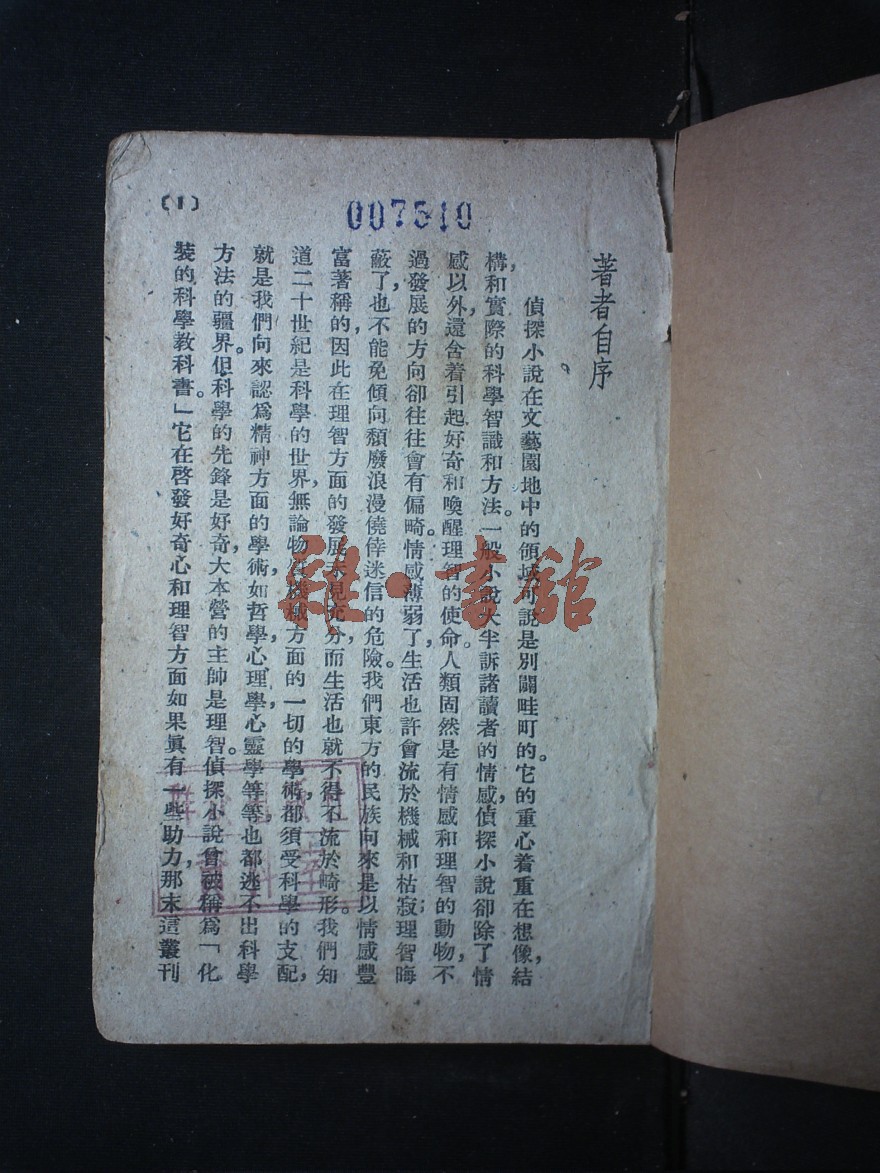 著者自序
偵探小說在文藝園地中的領域可說是別闢畦町的。它的重心着重在想像,結
構,和實際的科學智識和方法。一般小說大半訴諸讀者的情感,偵探小說卻除了情
感以外,還含着引起好奇和喚醒理智的使命。人類固然是有情感和理智的動物,不
過發展的方向卻往往會有偏畸。情感薄弱了,生活也許會流於機械和枯寂;理智晦
蔽了,也不能免傾向頹廢浪漫僥倖迷信的危險。我們東方的民族向來是以情感豐
富著稱的,因此在理智方面的發展未見充分,而生活也就不得不流於畸形。我們知
道二十世紀是科學的世界,無論物質機械方面的一切的學術,都須受科學的支配,
就是我們向來認爲精神方面的學術,如哲學,心理學,心靈學等等,也都逃不出科學
方法的疆界。但科學的先鋒是好奇,大本營的主帥是理智。偵探小說曾被稱爲「化
裝的科學教科書。」它在啓發好奇心和理智方面如果眞有一些助力,那末這叢刊
(1)
007510
雜·書館